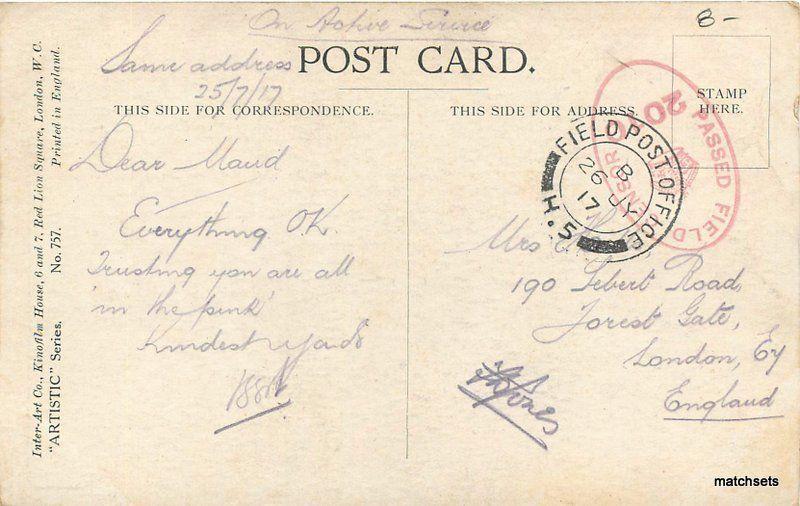 On Active Service
Same address
25/7/17
POST CARD.
8-
STAMP
HERE.
THIS SIDE FOR CORRESPONDENCE.
THIS SIDE FOR ADDRESS
Inter-Art Co., Kinofilm House, 6 and 7, Red Lion Square, London, W.C.
"ARTISTIC" Series. No. 757. Printed in England.
Dear Maud
Everything OK.
Trusting you are all
'in the pink'
Kindest
PASSED FIELD
FIELD POST OFFICE
B
26 JY
17
H.5
Mrs
190 Sebert Road,
Forest Gate,
London, E7
England
matchsets